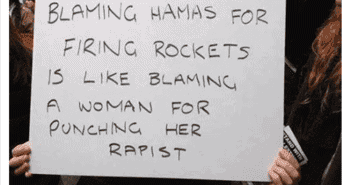 BLAMING HAMAS FOR
FIRING ROCKETS
IS LIKE BLAMING
A WOMAN FOR
PUNCHING HER
RAPIST